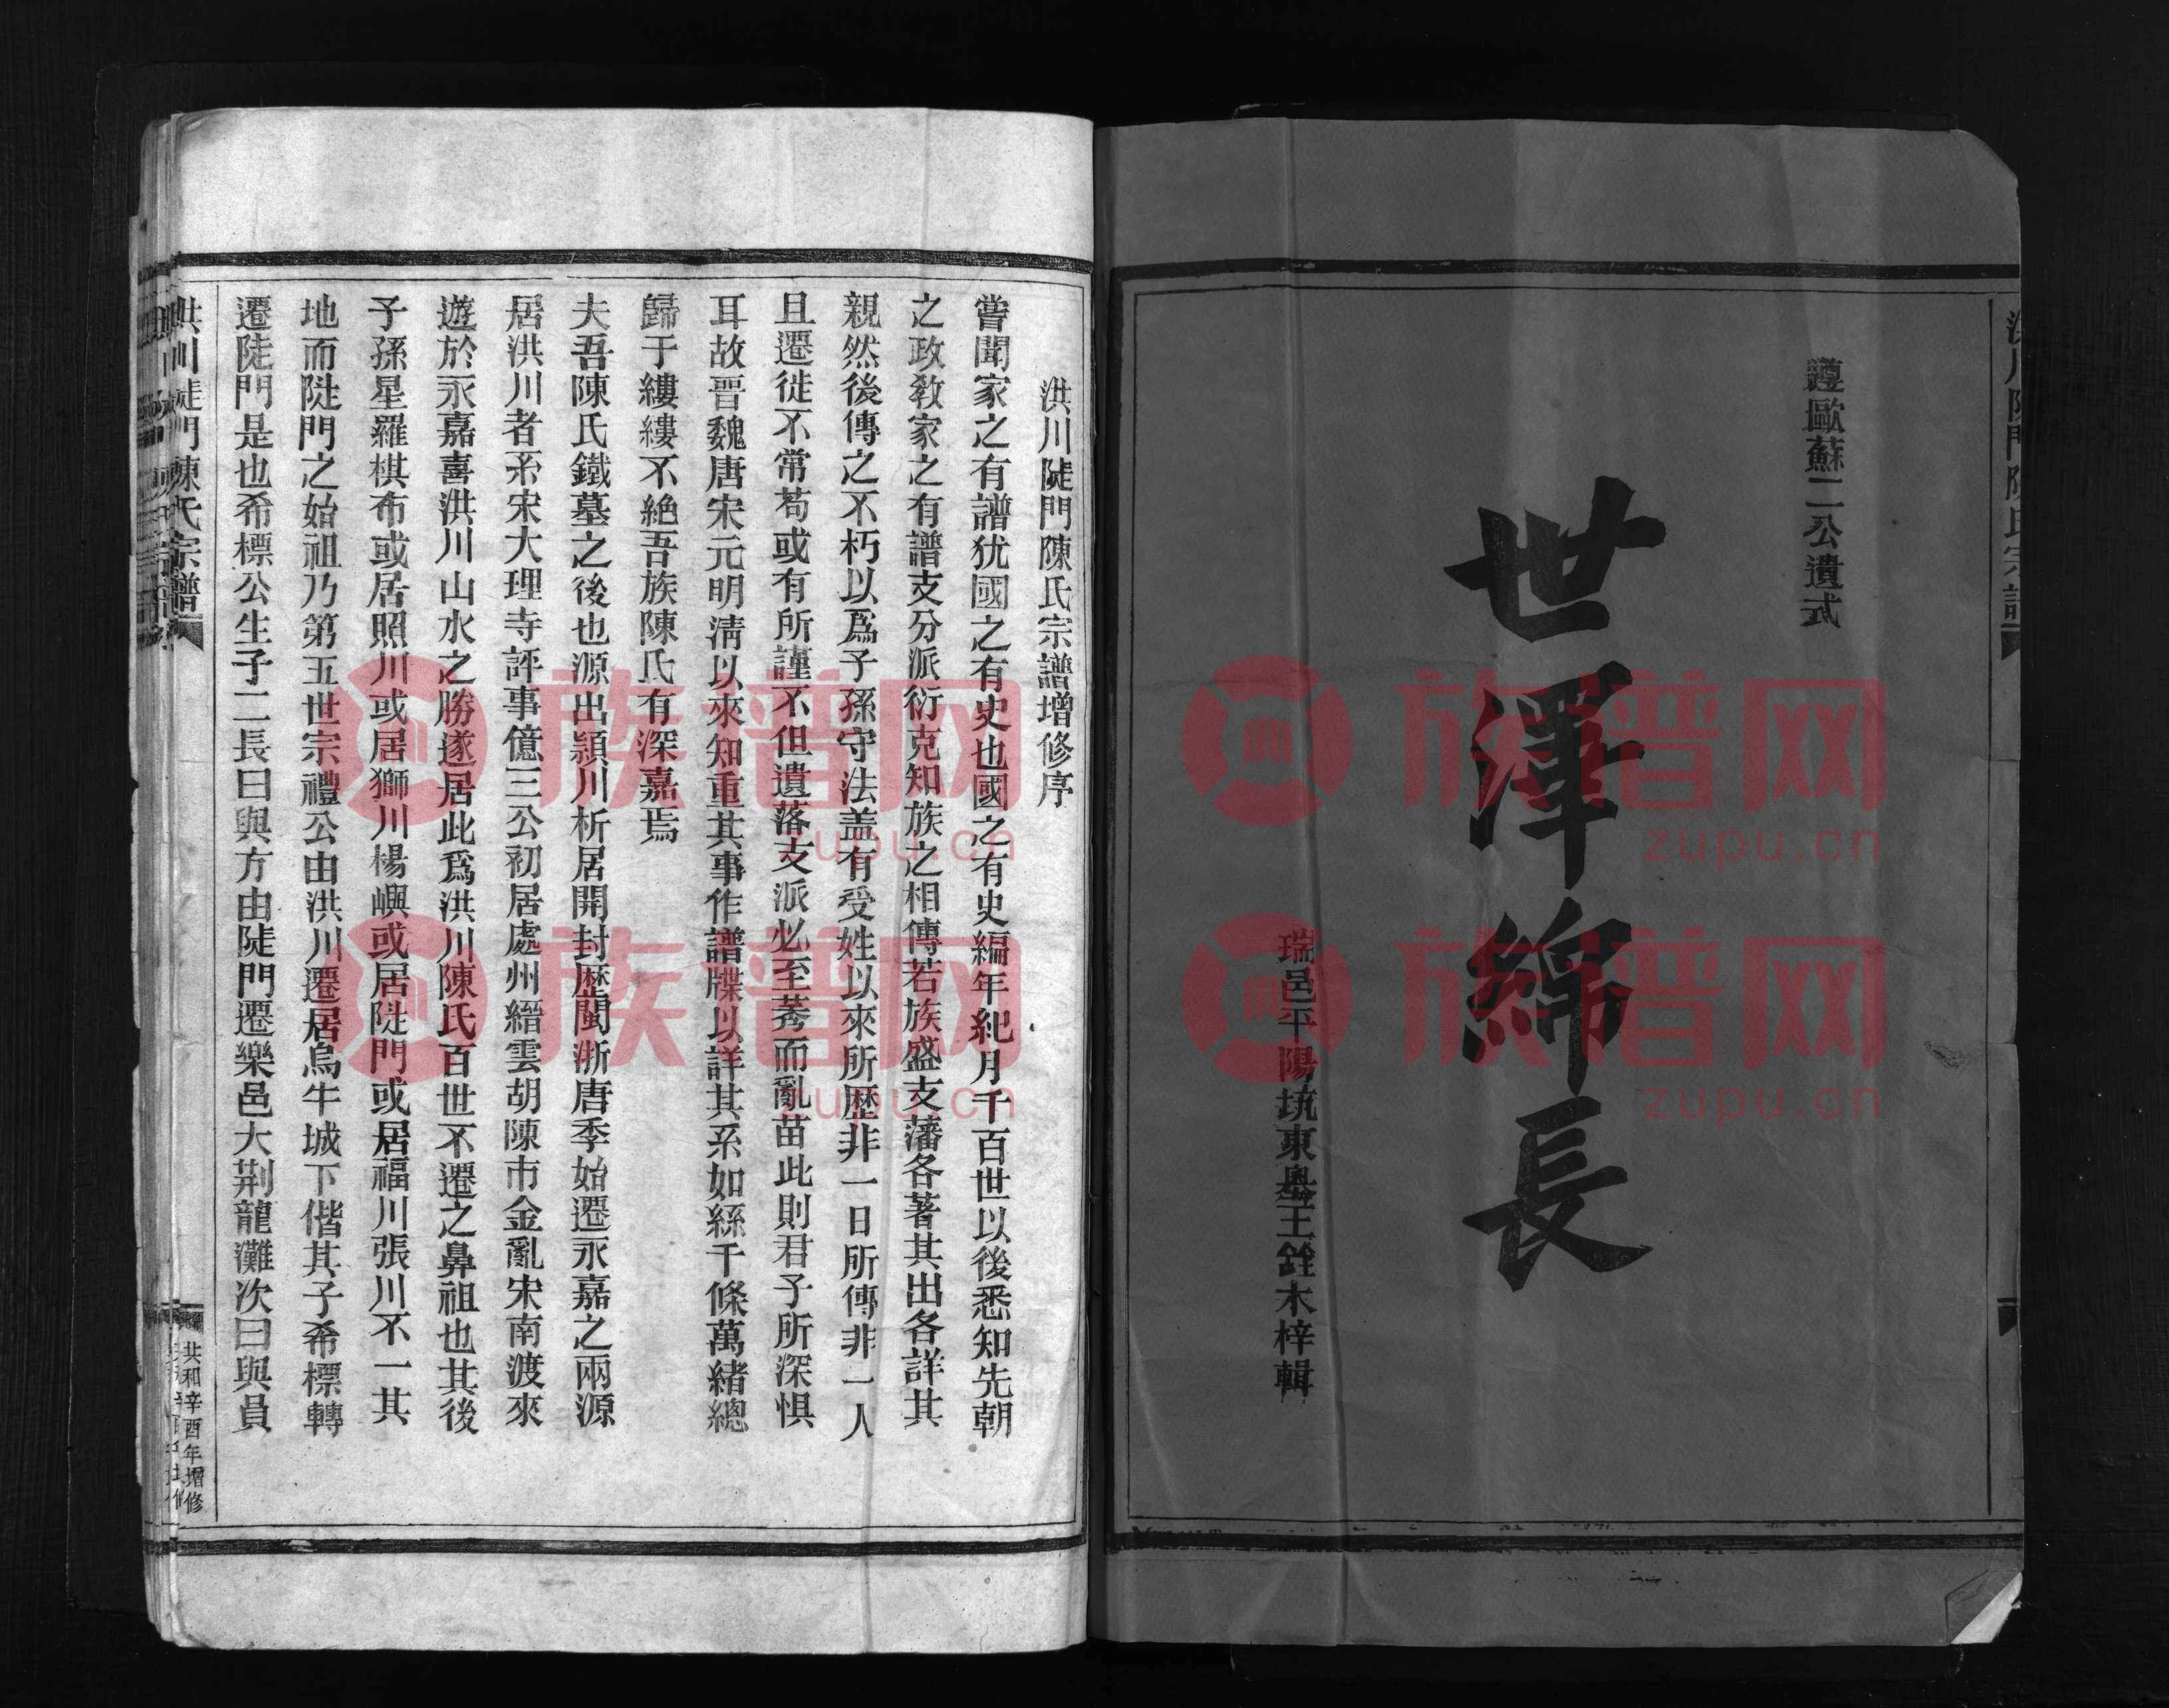 遵歐蘇二公遺式
世澤綿長
瑞邑平陽坑東墺王銓木梓輯
洪川陡門陳氏宗譜增修序
嘗聞家之有譜犹國之有史也國之有史編年紀月千百世以後悉知先朝
之政敎家之有譜支分派衍克知族之相傳若族盛支藩各著其出各詳其
親然後傳之不朽以爲子孫守法盖有受姓以來所歷非一日所傳非一人
且遷徙不常苟或有所謹不但遺落支派必至莠而亂苗此則君子所深惧
耳故晋魏唐宋元明清以來知重其事作譜牒以詳其系如絲千條萬緒總
歸于縷縷不絶吾族陳氏有深嘉焉
夫吾陳氏鐵墓之後也源出潁川析居開封歷閩浙唐季始遷永嘉之兩源
居洪川者系宋大理寺評事億三公初居處州縉雲胡陳市金亂宋南渡來
遊於永嘉喜洪川山水之勝遂居此爲洪川陳氏百世不遷之鼻祖也其後
子孫星羅棋布或居照川或居獅川楊嶼或居陡門或居福川張川不一其
地而陡門之始祖乃第五世宗禮公由洪川遷居烏牛城下偕其子希標轉
遷陡門是也希標公生子二長曰與方由陡門遷樂邑大荆龍灘次曰與員
洪川陡門陳氏宗譜
共和辛酉年增修
族普网
zupu.cn
族普网
zupu.cn
族普网
zupu.cn
族普网
zupu.cn